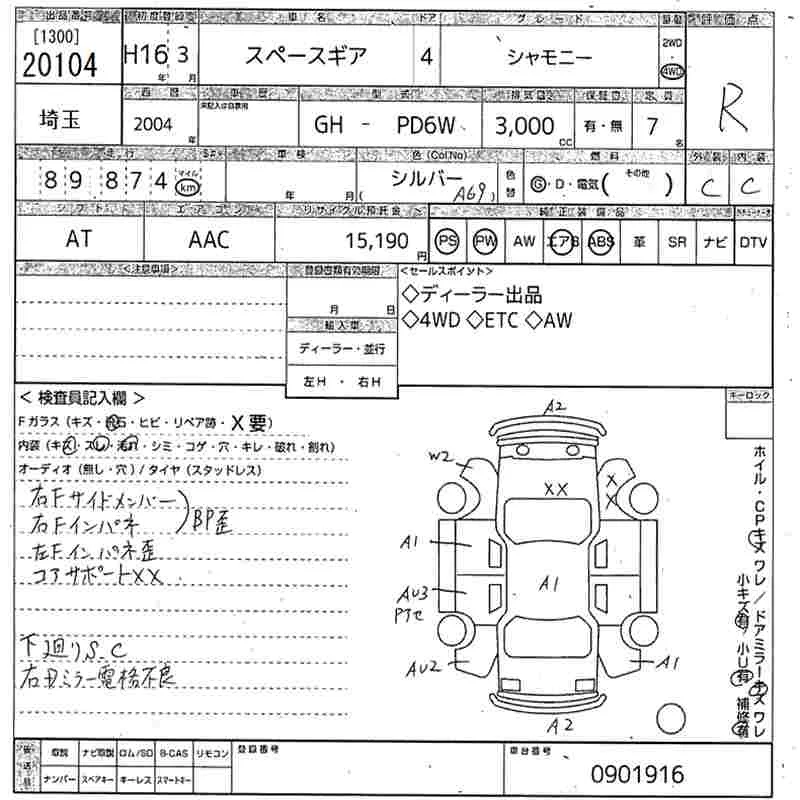 出品番号 初度登録年 車名 ドア グレード 駆動 評価点
[1300]
20104 H16 3 スペースギア 4 シャモニー 2WD 4WD R
年 月
西暦 車歴 型式 排気量 保証書 定員
未記入は自家用
埼玉 2004 年 GH - PD6W 3,000 CC 有・無 7 名
走行 車検 色 (Col,No) 燃料 外装 内装
89874 マイル km 年 月 シルバー ( A69 ) 色替 G・D・電気( その他 ) C C
シフト エアコン リサイクル預託金 純正装備品
AT AAC 15,190 円 PS PW AW エアB ABS 革 SR ナビ DTV
<注意事項> 登録書類有効期限 <セールスポイント>
月 日
◇ディーラー出品
◇4WD ◇ETC ◇AW
輸入車
ディーラー・並行
左H ・ 右H
キーロック
< 検査員記入欄 >
Fガラス (キズ・飛石・ヒビ・リペア跡・X要)
内装 (キズ・スレ・汚れ・シミ・コゲ・穴・キレ・破れ・割れ)
オーディオ (無し・穴) / タイヤ (スタッドレス)
右Fサイドメンバー
右Fインパネ
BP歪
左Fインパネ歪
コアサポートXX
下廻りS.C
右Dミラー電格不良
A2
W2
XX
X
X
A1
AU3
Pアせ
A1
AU2
A1
A2
ホイル・CPキズ ワレ / ドアミラーキズ ワレ
小キズ有, 小U有 補修有
後送品 取説 ナビ取説 ロム/SD B-CAS リモコン 登録番号 車台番号
ナンバー スペアキー キーレス スマートキー
0901916